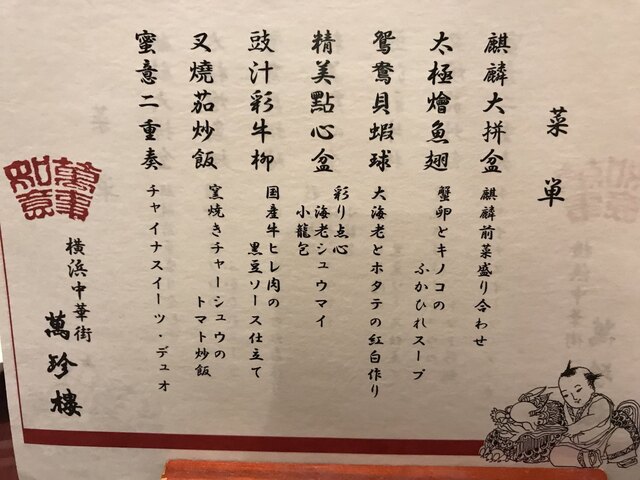 菜單
麒麟大拼盆
麒麟前菜盛り合わせ
太極燴魚翅
蟹卵とキノコの
ふかひれスープ
鴛鴦貝蝦球
大海老とホタテの紅白作り
精美點心盆
彩り点心
海老シュウマイ
小籠包
豉汁彩牛柳
国産牛ヒレ肉の
黒豆ソース仕立て
叉燒茄炒飯
窯焼きチャーシュウの
トマト炒飯
蜜意二重奏
チャイナスイーツ・デュオ
萬事如意
横浜中華街
萬珍樓